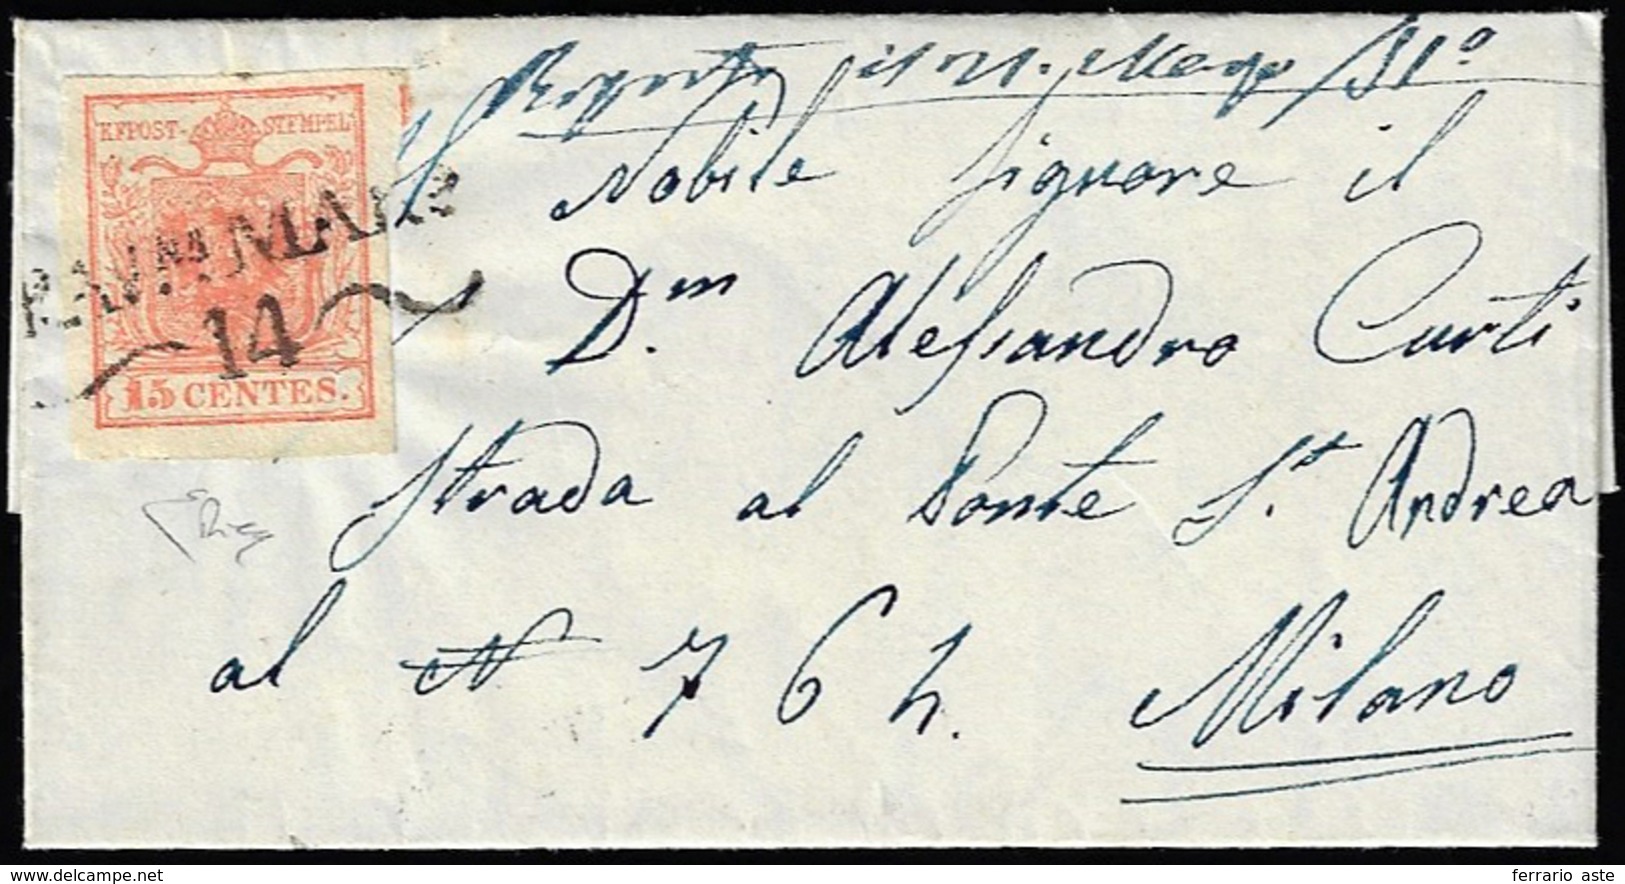 KKPOST-STEMPEL
14
15 CENTES.
il 21. Mago 51°
Nobile Signore il
D.m Alessandro Curti
Strada al Ponte S.t Andrea
al N 764. Milano
delcampe.net
ferrario aste